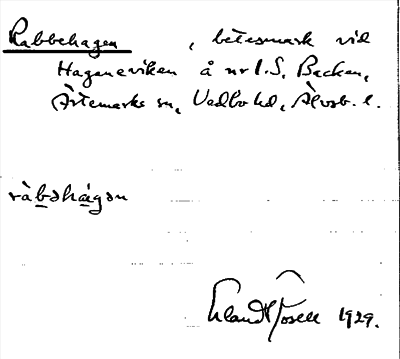 Rabbehagen, betesmark vid
Hageneviken å nr 1. S. Backen,
Ärtemarks sn, Vedbo hd, Älvsb. l.
ràbəhágən
Erland Rosell 1929.